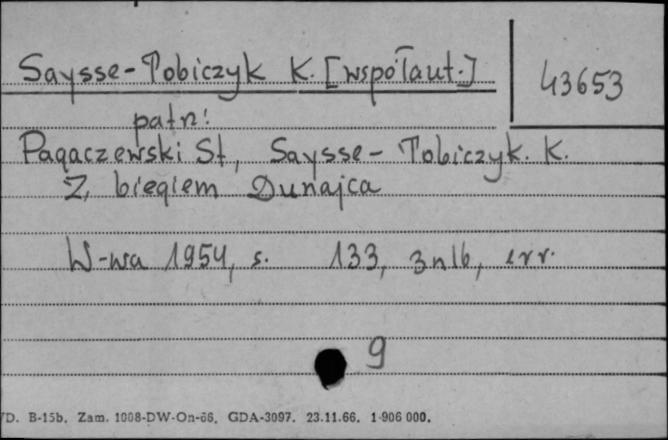 Saysse-Tobiczyk K. [współaut.]
43653
patrz:
Pagaczewski St, Saysse-Tobiczyk. K.
Z biegiem Dunajca
W-wa 1954, s. 133, 3nlb, err.
9
D. B-15b. Zam. 1008-DW-On-66. GDA-3097. 23.11.66. 1 906 000.